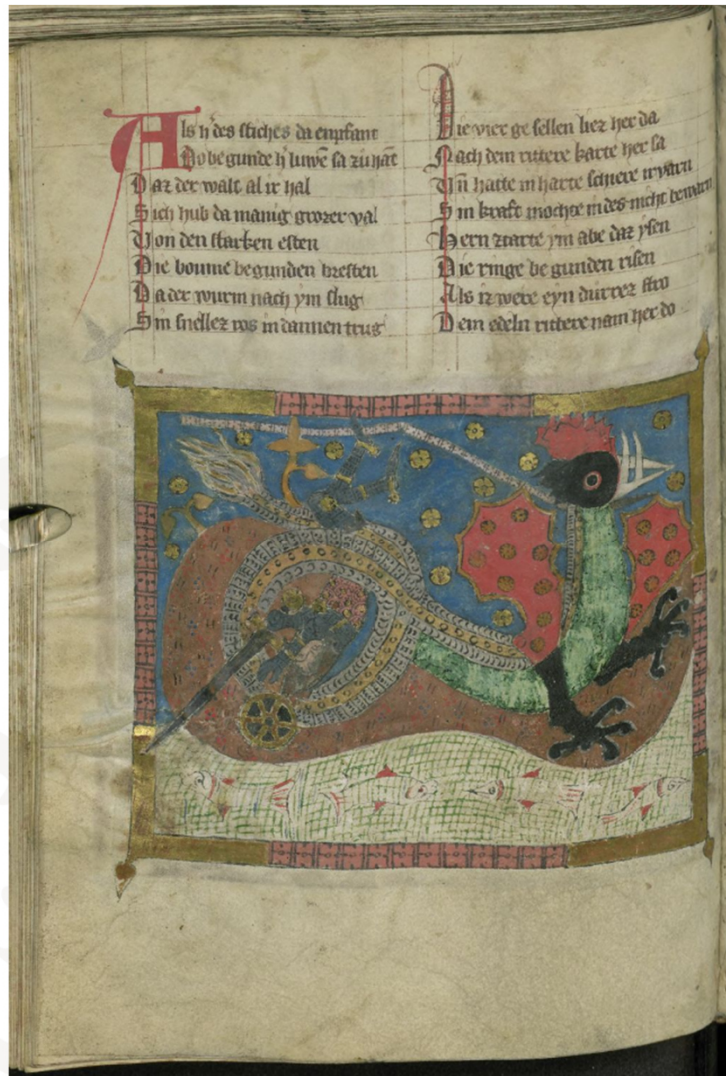 Als h' des stiches da enpfant
Do begunde h' luwē sa zu hāt
Daz der walt al ir hal
Sich hub da manig grozer val
Von den starken esten
Die boume begunden bresten
Da der wurm nach ym slug
Sin snellez ros in dannen trug
Die vier ge sellen liez her da
Nach dem rittere karte her sa
Vn̄ hatte in harte schiere irvarn
Sin kraft mochte in des nicht bewarn
Hern zcarte ym abe daz ysen
Die ringe be gunden risen
Als iz were eyn durrez stro
Dem edeln rittere nam her do